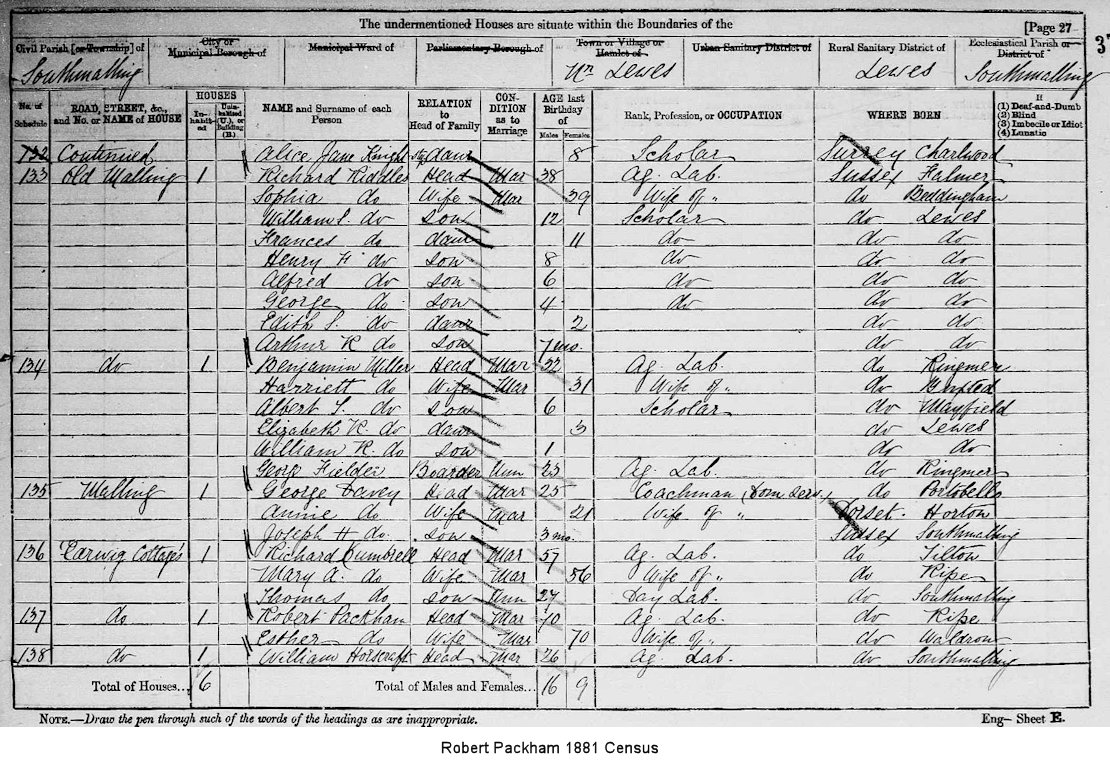 The undermentioned Houses are situate within the Boundaries of the
[Page 27
Civil Parish [or Township] of City or Municipal Borough of Municipal Ward of Parliamentary Borough of Town or Village or Hamlet of Urban Sanitary District of Rural Sanitary District of Ecclesiastical Parish or District of
3
Southmalling Nr Lewes Lewes Southmalling
No. of Schedule ROAD, STREET, &c., and No. or NAME of HOUSE HOUSES Inhabited Uninhabited (U.), or Building (B.) NAME and Surname of each Person RELATION to Head of Family CONDITION as to Marriage AGE last Birthday of Males Females Rank, Profession, or OCCUPATION WHERE BORN If (1) Deaf-and-Dumb (2) Blind (3) Imbecile or Idiot (4) Lunatic
132 Continued Alice Jane Knight daur 8 Scholar Surrey Charlwood
133 Old Malling 1 Richard Riddles Head Mar 38 Ag. Lab. Sussex Falmer
Sophia do Wife Mar 39 Wife of " do Beddingham
William S. do son 12 Scholar do Lewes
Frances do daur 11 do do do
Henry H do son 8 do do do
Alfred do son 6 do do do
George do son 4 do do do
Edith S. do daur 2 do do
Arthur R do son 7 mo. do do
134 do 1 Benjamin Miller Head Mar 32 Ag. Lab. do Ringmer
Harriett do Wife Mar 31 Wife of " do
Albert S. do son 6 Scholar do Mayfield
Elizabeth R. do daur 3 do Lewes
William R. do son 1 do do
Georg Fielder Boarder Unn 23 Ag. Lab. do Ringmer
135 Malling 1 George Davey Head Mar 25 Coachman (Dom Serv.) do Portobello
Annie do Wife Mar 21 Wife of " Dorset. Horton
Joseph H do. son 3 mo. Sussex Southmalling
136 Earwig Cottages 1 Richard Dumbrell Head Mar 57 Ag. Lab. do Tilton
Mary A. do Wife Mar 56 Wife of " do Ripe
Thomas do son Unn 27 Day Lab. do Southmalling
137 do 1 Robert Packham Head Mar 70 Ag. Lab. do Ripe
Esther do Wife Mar 70 Wife of " do Waldron
138 do 1 William Horscraft Head Mar 26 Ag. Lab. do Southmalling
Total of Houses... 6 Total of Males and Females... 16 9
NOTE.—Draw the pen through such of the words of the headings as are inappropriate.
Eng— Sheet E.
Robert Packham 1881 Census